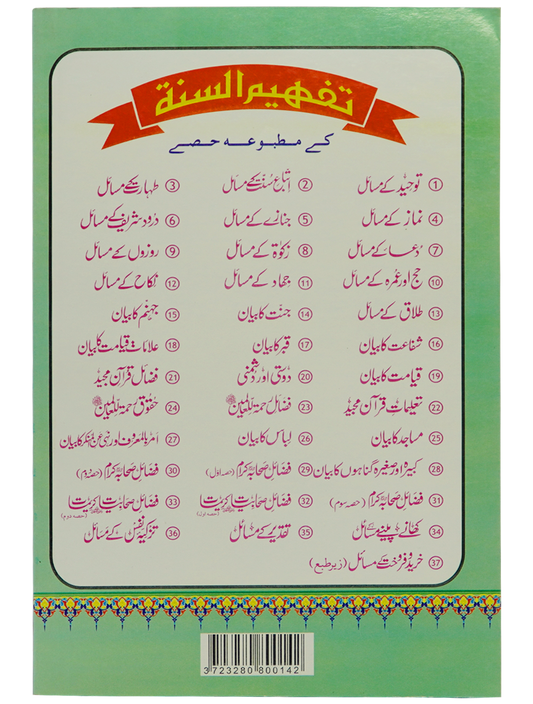 تفهيم السنة
کے مطبوعہ حصے
① توحید کے مسائل ② اتباعِ سنت کے مسائل ③ طہارت کے مسائل
④ نماز کے مسائل ⑤ جنازے کے مسائل ⑥ درود شریف کے مسائل
⑦ دُعا کے مسائل ⑧ زکوٰۃ کے مسائل ⑨ روزوں کے مسائل
⑩ حج اور عمرہ کے مسائل ⑪ جہاد کے مسائل ⑫ نکاح کے مسائل
⑬ طلاق کے مسائل ⑭ جنت کا بیان ⑮ جہنم کا بیان
⑯ شفاعت کا بیان ⑰ قبر کا بیان ⑱ علاماتِ قیامت کا بیان
⑲ قیامت کا بیان ⑳ دوستی اور دشمنی ㉑ فضائل قرآن مجید
㉒ تعلیماتِ قرآن مجید ㉓ فضائل رحمۃ للعالمین ﷺ ㉔ حقوق رحمۃ للعالمین ﷺ
㉕ مساجد کا بیان ㉖ لباس کا بیان ㉗ امر بالمعروف اور نہی عن المنکر کا بیان
㉘ کبیرہ اور صغیرہ گناہوں کا بیان ㉙ فضائل صحابہ کرام (حصہ اول) ㉚ فضائل صحابہ کرام (حصہ دوم)
㉛ فضائل صحابہ کرام (حصہ سوم) ㉜ فضائل صحابیات (حصہ اول) ㉝ فضائل صحابیات (حصہ دوم)
㉞ کھانے پینے کے مسائل ㉟ تقدیر کے مسائل ㊱ تزکیہ نفس کے مسائل
㊲ خرید و فروخت کے مسائل (زیر طبع)
3723280800142